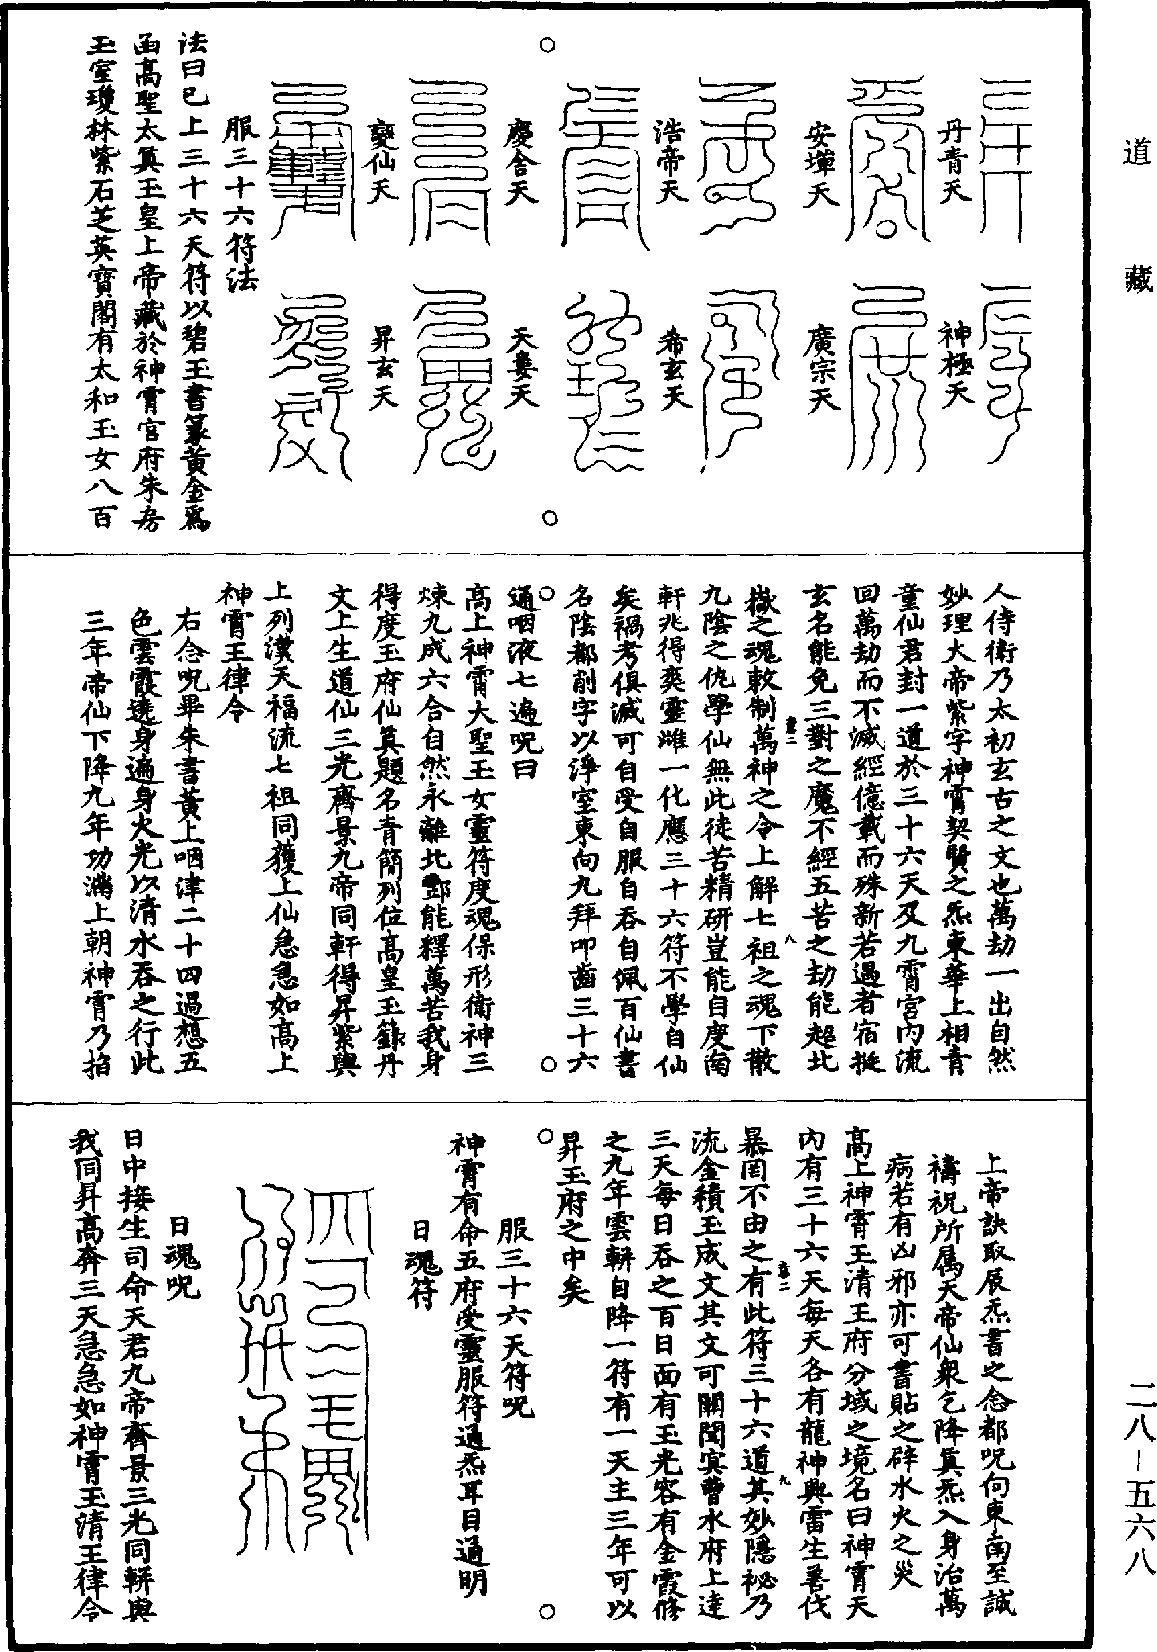 道藏
丹青天
神極天
安墠天
廣宗天
浩帝天
希玄天
慶合天
天婁天
變仙天
昇玄天
服三十六符法
法曰已上三十六天符以碧玉書篆黃金爲
函高聖太眞玉皇上帝藏於神霄宮府朱房
玉室瓊林紫石芝英寶閣有太和玉女八百
人侍衛乃太初玄古之文也萬劫一出自然
妙理大帝紫字神霄契賢之炁東華上相青
童仙君封一道於三十六天及九霄宮內流
回萬劫而不滅經億載而殊新若遇者宿挺
玄名能免三對之魔不經五苦之劫能超北
嶽之魂敕制萬神之令上解七祖之魂下散
九陰之仇學仙無此徒苦精研豈能自度南
軒兆得奕靈雌一化應三十六符不學自仙
矣禍考俱滅可自受自服自吞自佩百仙書
名陰都削字以淨室東向九拜叩齒三十六
通咽液七遍呪曰
高上神霄大聖玉女靈符度魂保形衛神三
煉九成六合自然永離北酆能釋萬苦我身
得度玉府仙眞題名青簡列位高皇玉籙丹
文上生道仙三光齊景九帝同軒得昇紫輿
上列漢天福流七祖同獲上仙急急如高上
神霄王律令
右念呪畢朱書黃上咽津二十四過想五
色雲霞遶身遍身火光以清水吞之行此
三年帝仙下降九年功滿上朝神霄乃掐
上帝訣取辰炁書之念都呪向東南至誠
禱祝所属天帝仙衆乞降眞炁入身治萬
病若有凶邪亦可書貼之辟水火之災
高上神霄王清王府分域之境名曰神霄天
內有三十六天每天各有龍神興雷生善伐
暴罔不由之有此符三十六道其妙隱祕乃
流金積玉成文其文可關聞冥曹水府上達
三天每日吞之百日面有玉光容有金霞修
之九年雲輧自降一符有一天主三年可以
昇玉府之中矣
服三十六天符呪
神霄有命五府受靈服符通炁耳目通明
日魂符
日魂呪
日中接生司命天君九帝齊景三光同輧與
我同昇高奔三天急急如神霄玉清王律令
二八—五六八